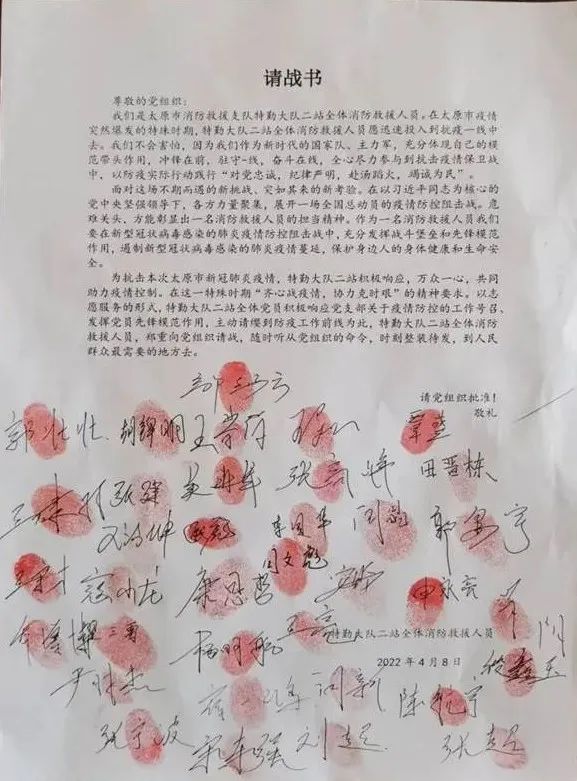 请战书
尊敬的党组织：
我们是太原市消防救援支队特勤大队二站全体消防救援人员。在太原市疫情
突然爆发的特殊时期，特勤大队二站全体消防救援人员愿迅速投入到抗疫一线中
去。我们不会害怕，因为我们作为新时代的国家队、主力军，充分体现自己的模
范带头作用，冲锋在前、驻守一线，奋斗在线，全心尽力参与到抗击疫情保卫战
中，以防疫实际行动践行“对党忠诚，纪律严明，赴汤蹈火，竭诚为民”。
面对这场不期而遇的新挑战、突如其来的新考验。在以习近平同志为核心的
党中央坚强领导下，各方力量聚集，展开一场全国总动员的疫情防控阻击战。危
难关头，方能彰显出一名消防救援人员的担当精神。作为一名消防救援人员我们
要在新型冠状病毒感染的肺炎疫情防控阻击中，充分发挥战斗堡垒和先锋模范
作用，遏制新型冠状病毒感染的肺炎疫情蔓延，保护身边人的身体健康和生命安
全。
为抗击本次太原市新冠肺炎疫情，特勤大队二站积极响应，万众一心，共同
助力疫情控制。在这一特殊时期“齐心战疫情，协力克时艰”的精神要求。以志
愿服务的形式，特勤大队二站全体党员积极响应党支部关于疫情防控的工作号召、
发挥党员先锋模范作用，主动请缨到防疫工作前线为此，特勤大队二站全体消防
救援人员，郑重向党组织请战，随时听从党组织的命令，时刻整装待发，到人民
群众最需要的地方去。
请党组织批准！
敬礼
郭壮壮 胡锦明
田晋栋
康恩哲 周文彪
寇小龙 申永亮
特勤大队二站全体消防救援人员
2022 年 4 月 8 日
杨明航
尹胜杰
张宁波 宋春强 刘超 张超